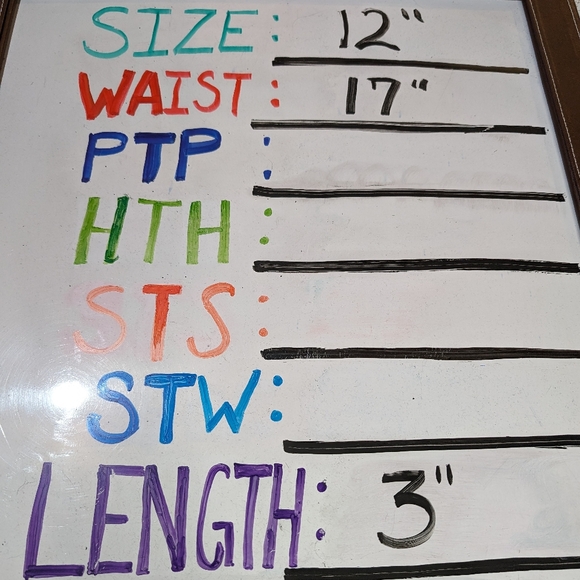 SIZE: 12"
WAIST: 17"
PTP:
HTH:
STS:
STW:
LENGTH: 3"